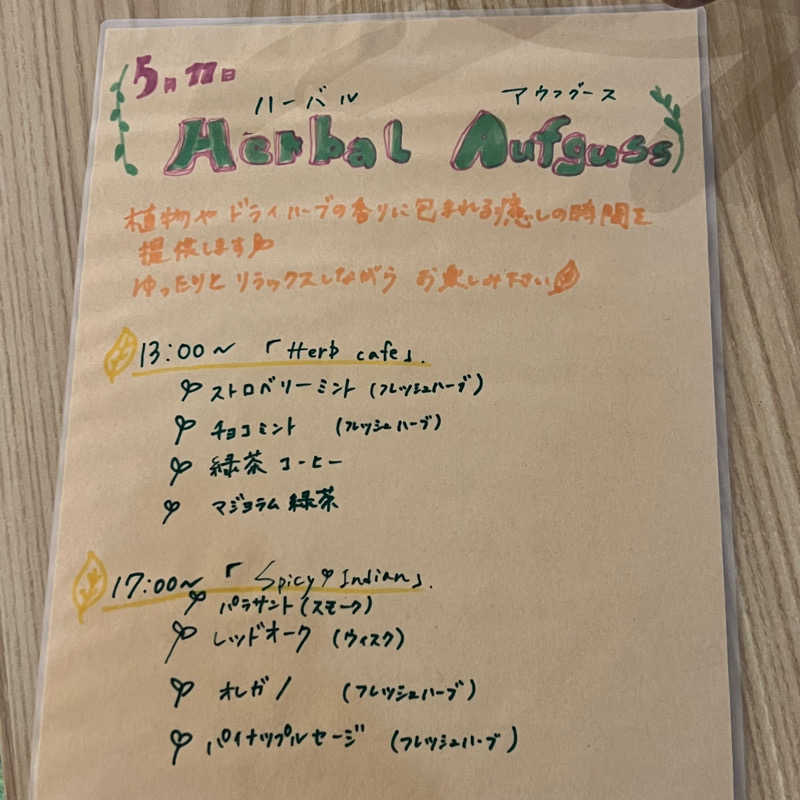 5月11日
ハーバル アウフグース
Herbal Aufguss
植物やドライハーブの香りに包まれる癒しの時間を
提供します
ゆったりとリラックスしながら お楽しみ下さい
13:00〜 「Herb cafe」.
ストロベリーミント (フレッシュハーブ)
チョコミント (フレッシュハーブ)
緑茶 コーヒー
マジョラム 緑茶
17:00〜 「Spicy Indian」.
パラサント (スモーク)
レッドオーク (ウィスク)
オレガノ (フレッシュハーブ)
パイナップルセージ (フレッシュハーブ)